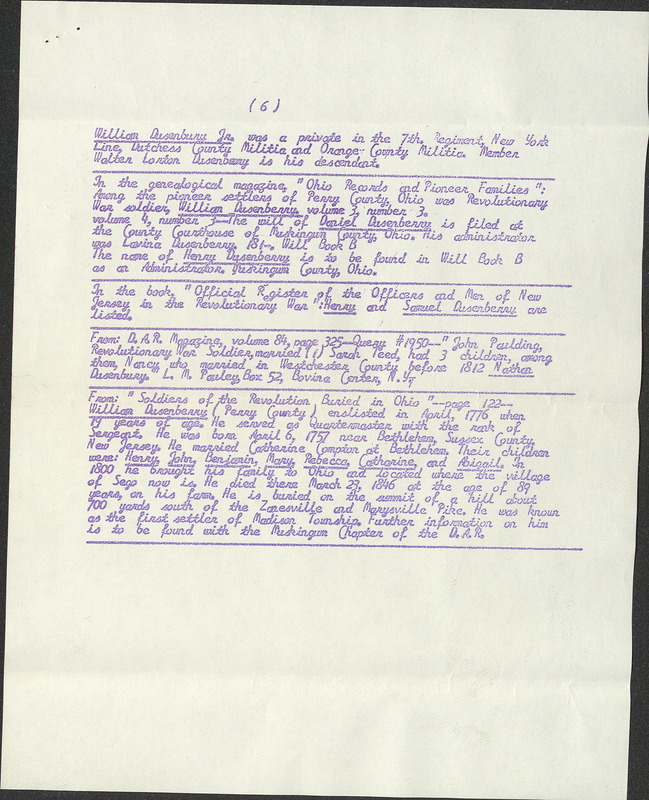 (6)
William Dusenbury Jr. was a private in the 7th. Regiment, New York
Line, Dutchess County Militia and Orange County Militia. Member
Walter Lorton Dusenberry is his descendant.
In the genealogical magazine, "Ohio Records and Pioneer Families":
Among the pioneer settlers of Perry County, Ohio was Revolutionary
War soldier, William Dusenberry, volume 3, number 3.
volume 4, number 3--The will of Daniel Dusenberry is filed at
the County Courthouse of Muskingum County, Ohio. His administrator
was Lavina Dusenberry. Will Book B
The name of Henry Dusenberry is to be found in Will Book B
as an Administrator. Muskingum County, Ohio.
In the book, "Official Register of the Officers and Men of New
Jersey in the Revolutionary War": Henry and Samuel Dusenberry are
listed.
From: D.A.R. Magazine, volume 84, page 325--Query #1950--"John Paulding,
Revolutionary War Soldier, married (1) Sarah Teed, had 3 children, among
them, Nancy who married in Westchester County before 1812 Nathan
Dusenbury." L. M. Pauley, Box 52, Bovina Center, N.Y.
From: "Soldiers of the Revolution Buried in Ohio"--page 122--
William Dusenberry (Perry County) enslisted in April, 1776 when
19 years of age. He served as Quartermaster with the rank of
Sergeant. He was born April 6, 1757 near Bethlehem, Sussex County,
New Jersey. He married Catherine Compton at Bethlehem. Their children
were: Henry, John, Benjamin, Mary, Rebecca, Catharine, and Abigail. In
1800 he brought his family to Ohio and located where the village
of Sego now is. He died there March 23, 1846 at the age of 89
years, on his farm. He is buried on the summit of a hill about
700 yards south of the Zanesville and Marysville Pike. He was known
as the first settler of Madison Township. Further information on him
is to be found with the Muskingum Chapter of the D.A.R.